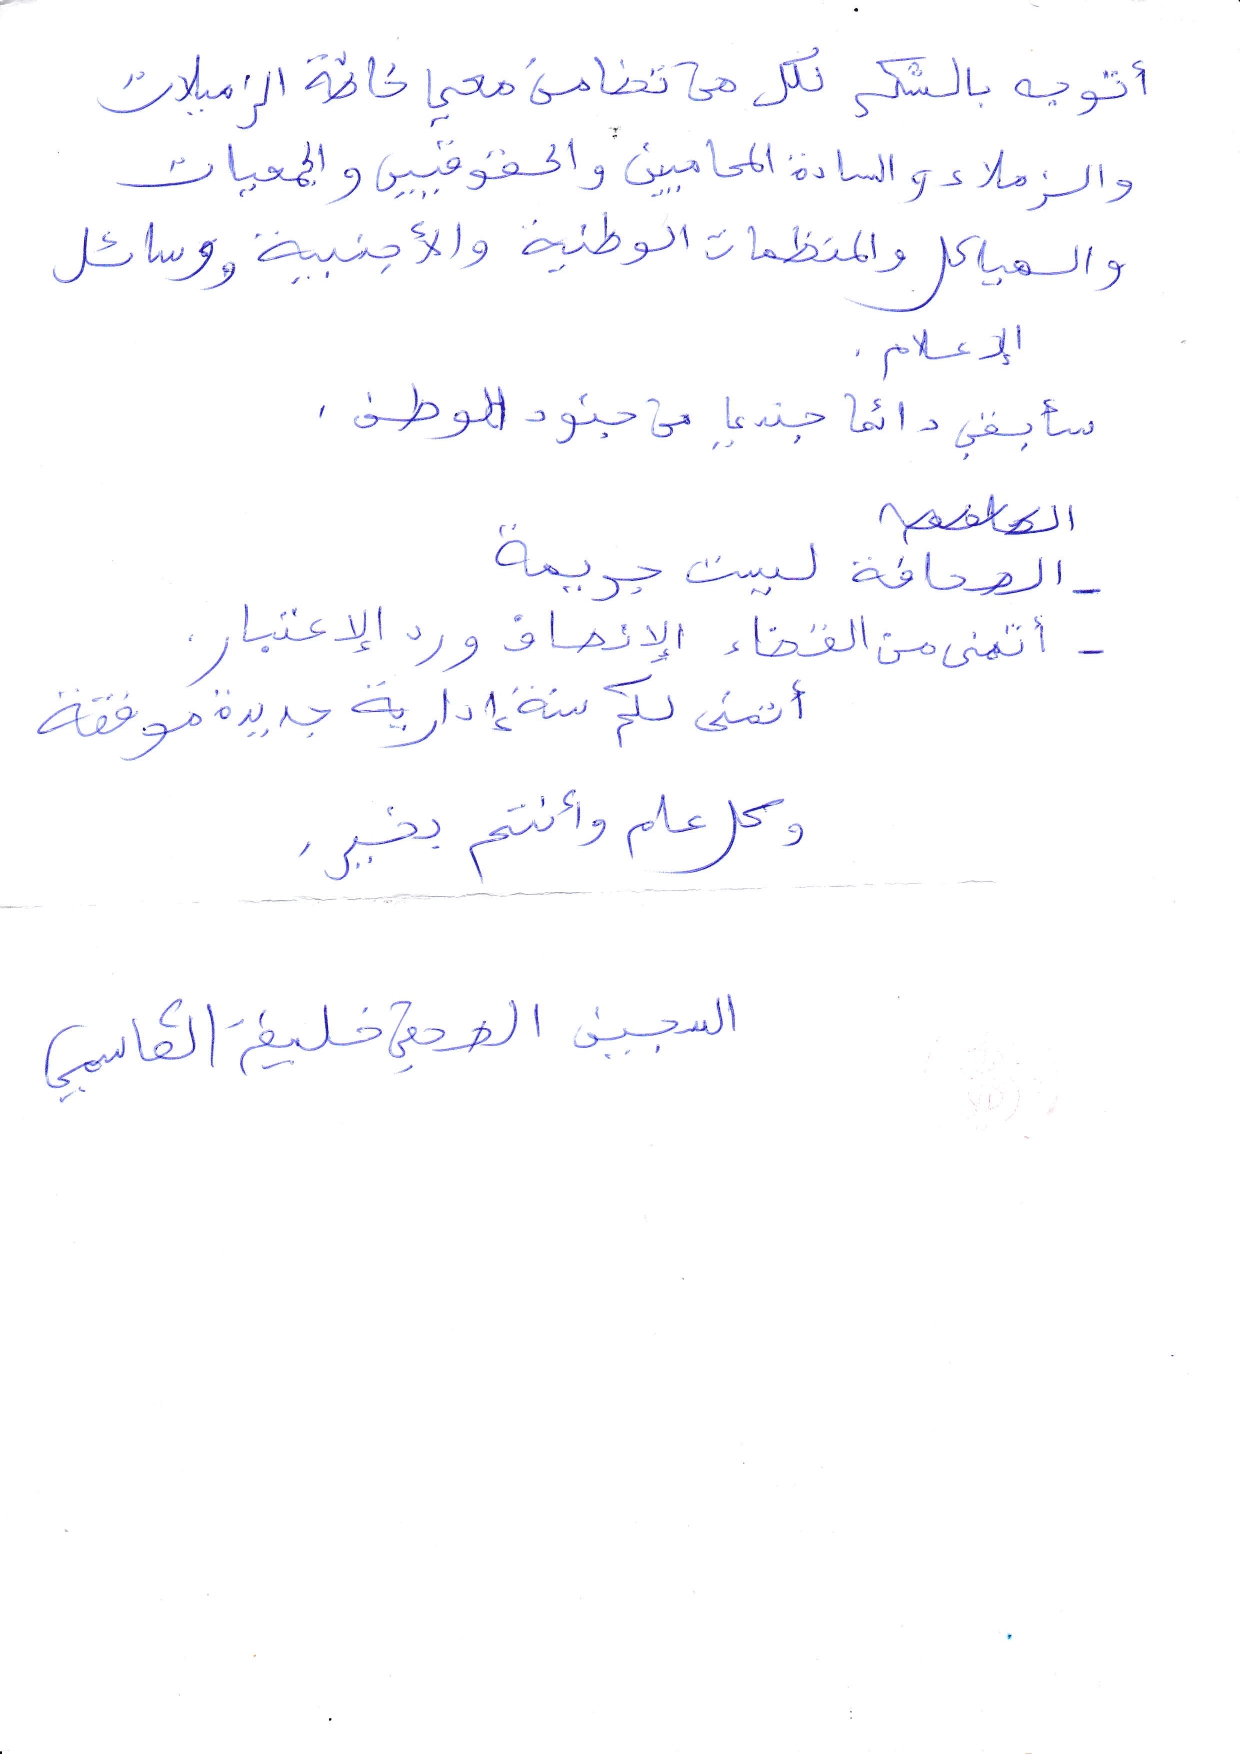 أتوجه بالشكر لكل من تضامن معي خاصّة الزميلات
والزملاء والسادة المحاميين والحقوقيّيين والجمعيات
والهياكل والمنظمات الوطنية والأجنبية ووسائل
الإعلام.
سأبقى دائما جنديا من جنود الوطن.
- الصحافة ليست جريمة
- أتمنى من القضاء الإنصاف ورد الإعتبار.
أتمنى لكم سنة إدارية جديدة موفقة
وكل عام وأنتم بخير.
السجين الصحفي خليفة القاسمي